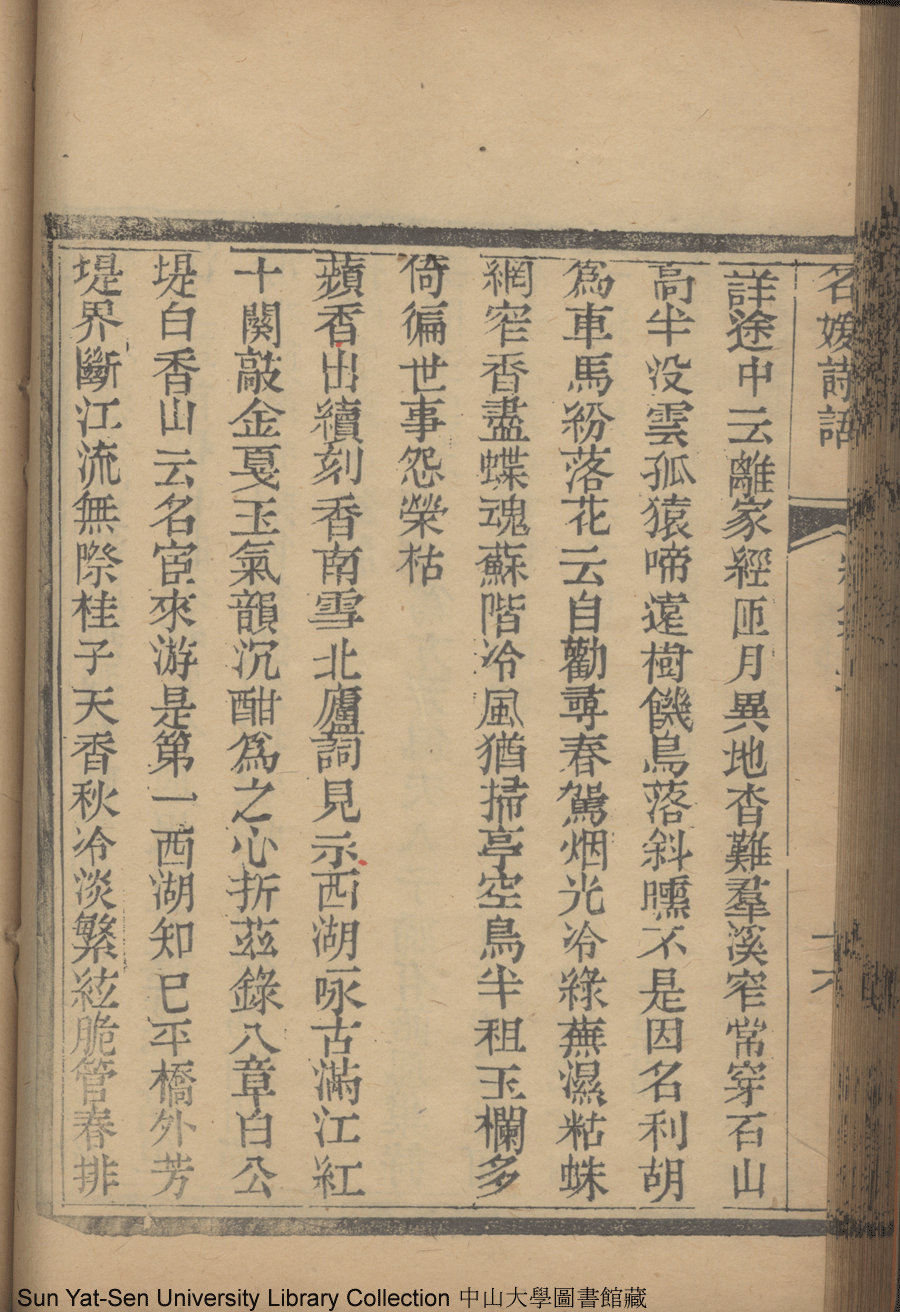 名媛詩話
十六
詳途中云離家經匝月異地杳難羣溪窄常穿石山
高半没雲孤猿啼遠樹饑鳥落斜曛不是因名利胡
爲車馬紛落花云自勸尋春駕烟光冷綠蕪濕粘蛛
網窄香盡蝶魂蘇階冷風猶掃亭空鳥半租玉欄多
倚徧世事怨榮枯
蘋香出續刻香南雪北廬詞見示西湖咏古滿江紅
十闋敲金戛玉氣韻沉酣爲之心折茲錄八章白公
堤白香山云名宦來游是第一西湖知巳平橋外芳
堤界斷江流無際桂子天香秋冷淡繁絃脆管春排
Sun Yat-Sen University Library Collection 中山大學圖書館藏